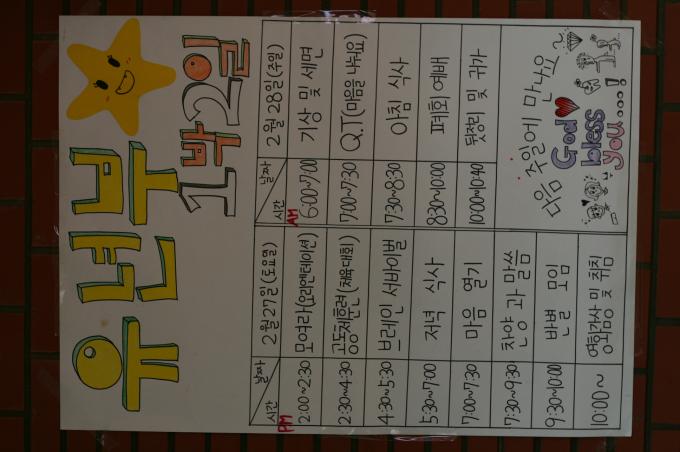 유년부
1박2일
날짜
시간
2월 27일(토요일)
PM
2:00~2:30 모여라(오리엔테이션)
2:30~4:30 공동체훈련(체육대회)
4:30~5:30 브레인 서바이벌
5:30~7:00 저녁 식사
7:00~7:30 마음 열기
7:30~9:30 찬양 과 말씀
9:30~10:00 반별 모임
10:00~ 영화감상 및 취침
날짜
시간
2월 28일(주일)
AM
6:00~7:00 기상 및 세면
7:00~7:30 Q.T(마음을 나눠요)
7:30~8:30 아침 식사
8:30~10:00 폐회 예배
10:00~10:40 뒷정리 및 귀가
다음 주일에 만나요~
God
bless
you...!